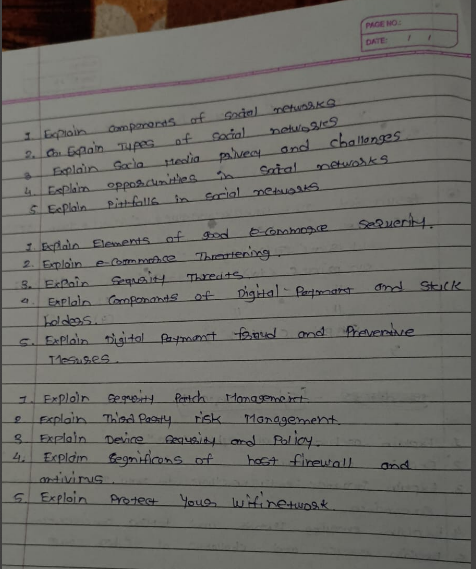 PAGE NO.:
DATE: / /
1 Explain components of social networks
2. Explain Types of social networks
3 Explain Socia Media privery and challanges
4. Explain opportunities in social networks
5. Explain Pittfalls in social networks
1 Explain Elements of good E-commerce sequerity.
2. Explain e-commerce Threatening.
3. Explain Sequrity Threats
4. Explain Components of Digital-Payment and Stick
holders.
5. Explain Digital Payment fraud and Preventive
Mesures.
1. Explain Sequrity Patch Management
2 Explain Third Party risk Management.
3 Explain Device Sequrity and Policy.
4. Explain Segnificons of host firewall and
antivirus.
5 Explain Protect Your wifi network